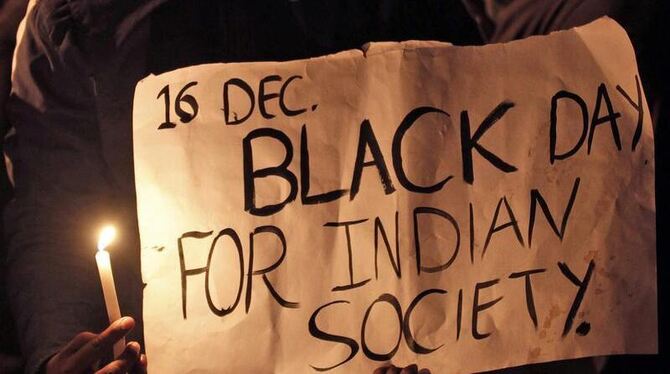 16 DEC.
BLACK DAY.
FOR INDIAN
SOCIETY.